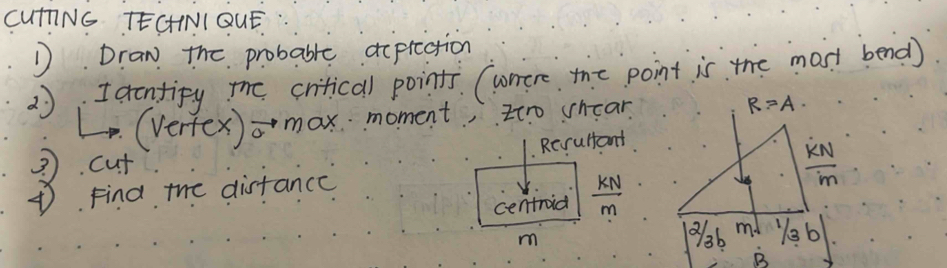 CUTTING TECHNIQUE
1) Draw the probable deflection
2.) Identify the critical points (where the point is the most bend)
↳ (vertex) → max moment, zero shear
3) cut
4) Find the distance
Resultant
centroid
kN/m
m
R = A
kN/m
2/3b m 1/3b
B